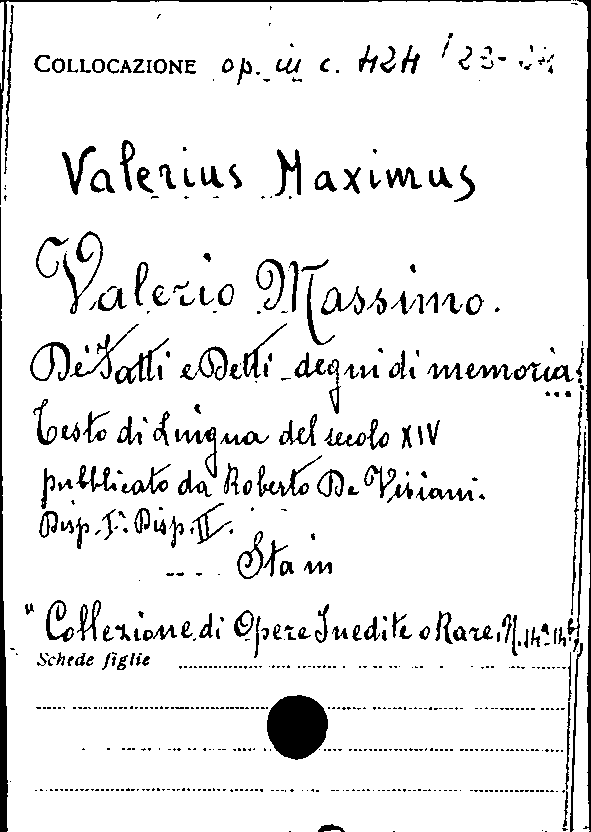 COLLOCAZIONE op. in c. 424 / 23-24
Valerius Maximus
Valerio Massimo.
De' Fatti e Detti degni di memoria.
Testo di Lingua del secolo XIV
pubblicato da Roberto De Visiani.
Disp. Iª. Disp. II.
Sta in
"Collezione di Opere Inedite o Rare, N. 14ª-14ᵇ,
Schede figlie